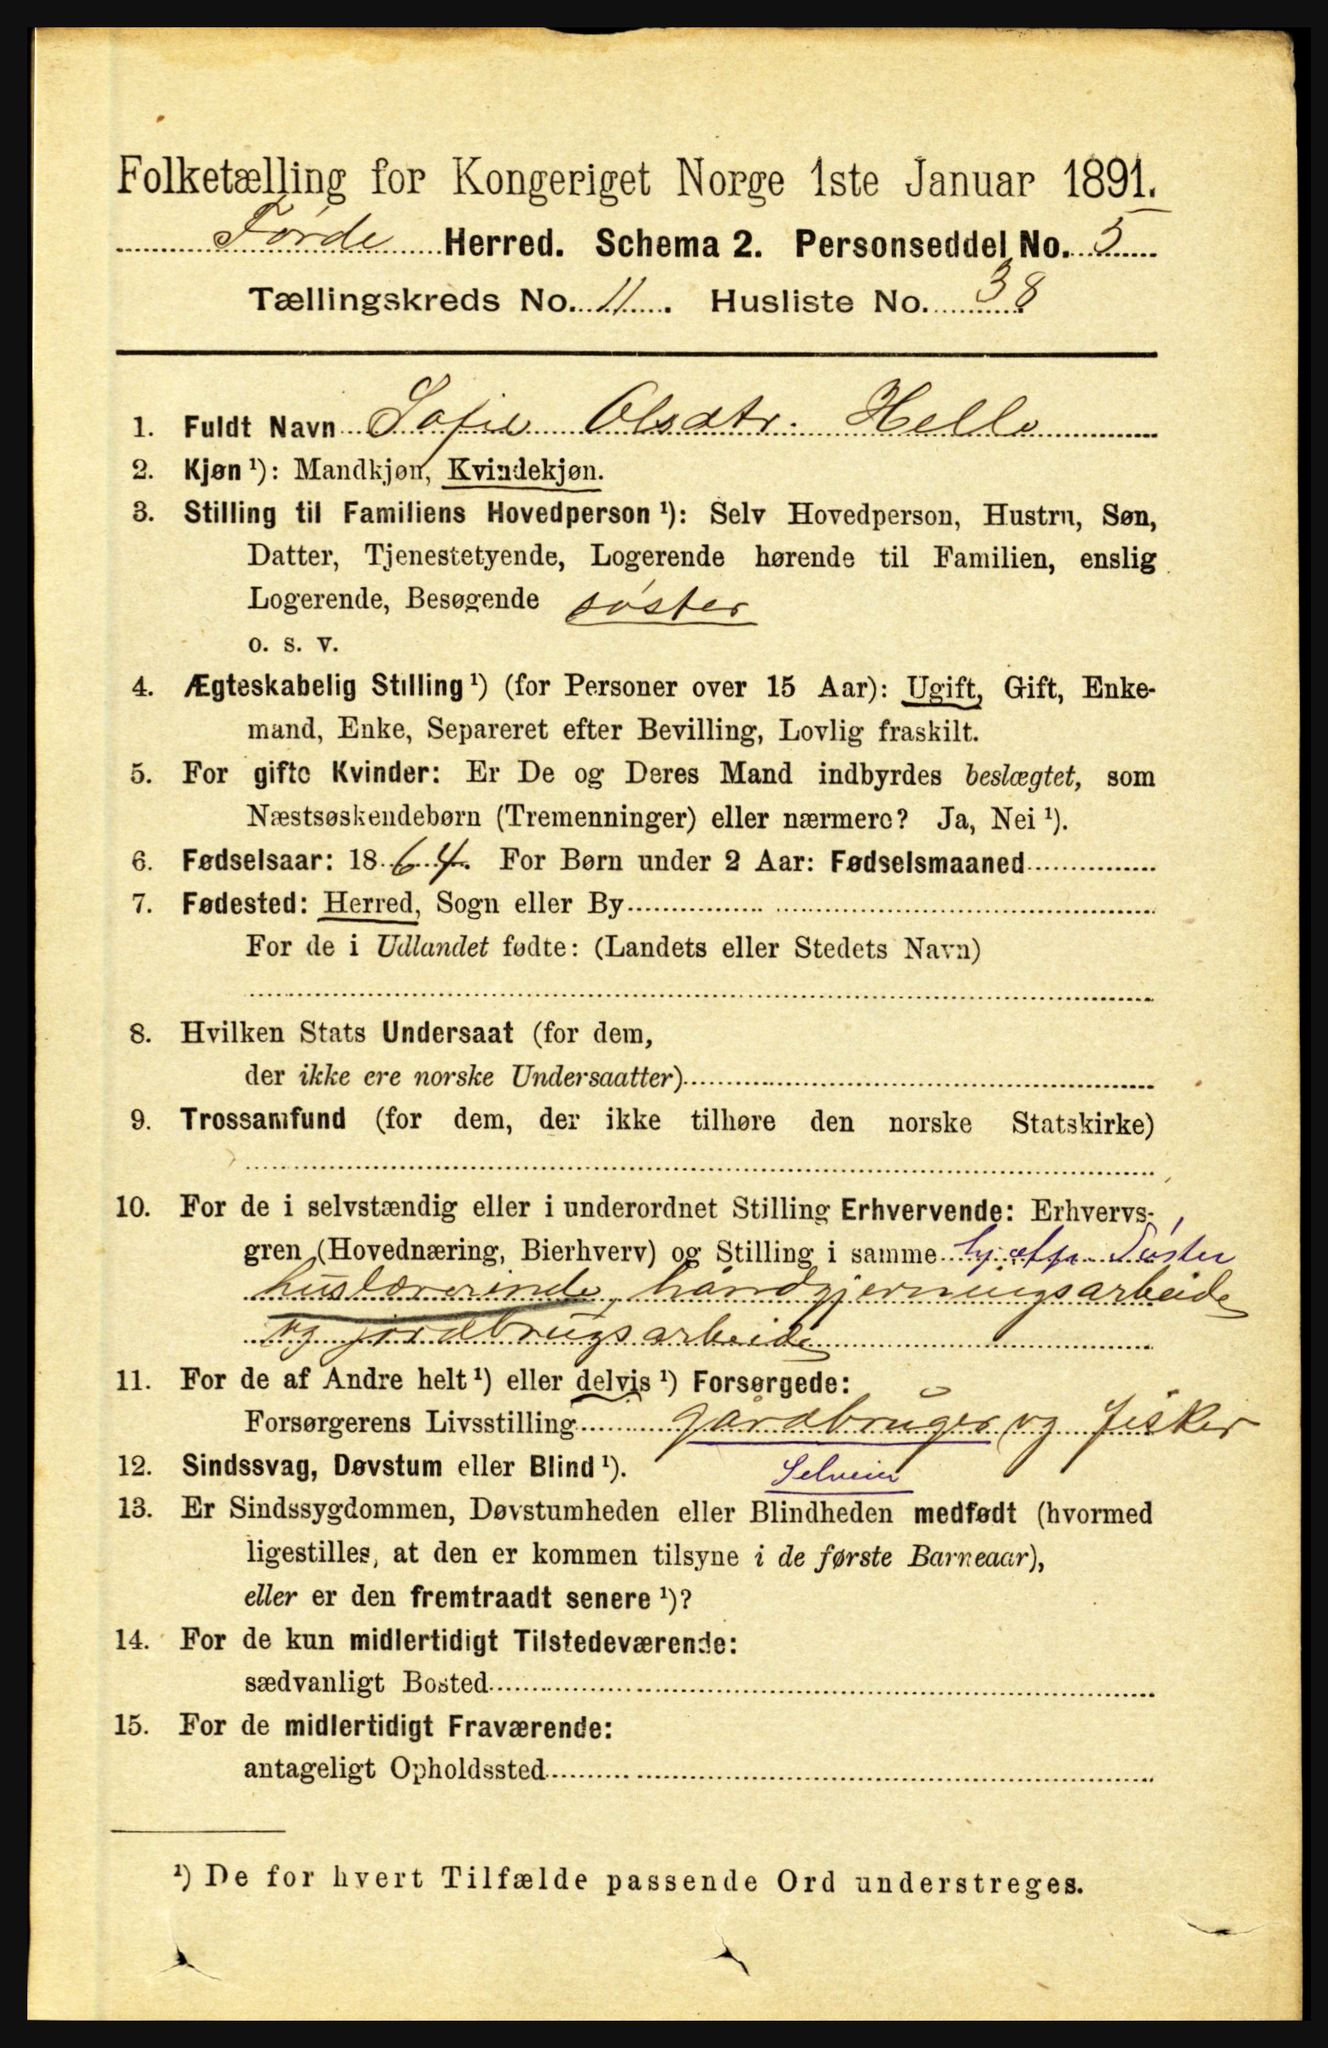 Folketælling for Kongeriget Norge 1ste Januar 1891.
Førde Herred. Schema 2. Personseddel No. 5
Tællingskreds No. 11. Husliste No. 38
1. Fuldt Navn Sofie Olsdtr. Helle
2. Kjøn ¹): Mandkjøn, Kvindekjøn.
3. Stilling til Familiens Hovedperson ¹): Selv Hovedperson, Hustru, Søn,
Datter, Tjenestetyende, Logerende hørende til Familien, enslig
Logerende, Besøgende søster
o. s. v.
4. Ægteskabelig Stilling ¹) (for Personer over 15 Aar): Ugift, Gift, Enke-
mand, Enke, Separeret efter Bevilling, Lovlig fraskilt.
5. For gifte Kvinder: Er De og Deres Mand indbyrdes beslægtet, som
Næstsøskendebørn (Tremenninger) eller nærmere? Ja, Nei ¹).
6. Fødselsaar: 1864. For Børn under 2 Aar: Fødselsmaaned
7. Fødested: Herred, Sogn eller By
For de i Udlandet fødte: (Landets eller Stedets Navn)
8. Hvilken Stats Undersaat (for dem,
der ikke ere norske Undersaatter)
9. Trossamfund (for dem, der ikke tilhøre den norske Statskirke)
10. For de i selvstændig eller i underordnet Stilling Erhvervende: Erhvervs-
gren (Hovednæring, Bierhverv) og Stilling i samme Søster
huslærerinde, håndgjerningsarbeide
og jordbrugsarbeide
11. For de af Andre helt ¹) eller delvis ¹) Forsørgede:
Forsørgerens Livsstilling gårdbruger og fisker
12. Sindssvag, Døvstum eller Blind ¹). Selveier
13. Er Sindssygdommen, Døvstumheden eller Blindheden medfødt (hvormed
ligestilles, at den er kommen tilsyne i de første Barneaar),
eller er den fremtraadt senere ¹)?
14. For de kun midlertidigt Tilstedeværende:
sædvanligt Bosted
15. For de midlertidigt Fraværende:
antageligt Opholdssted
¹) De for hvert Tilfælde passende Ord understreges.